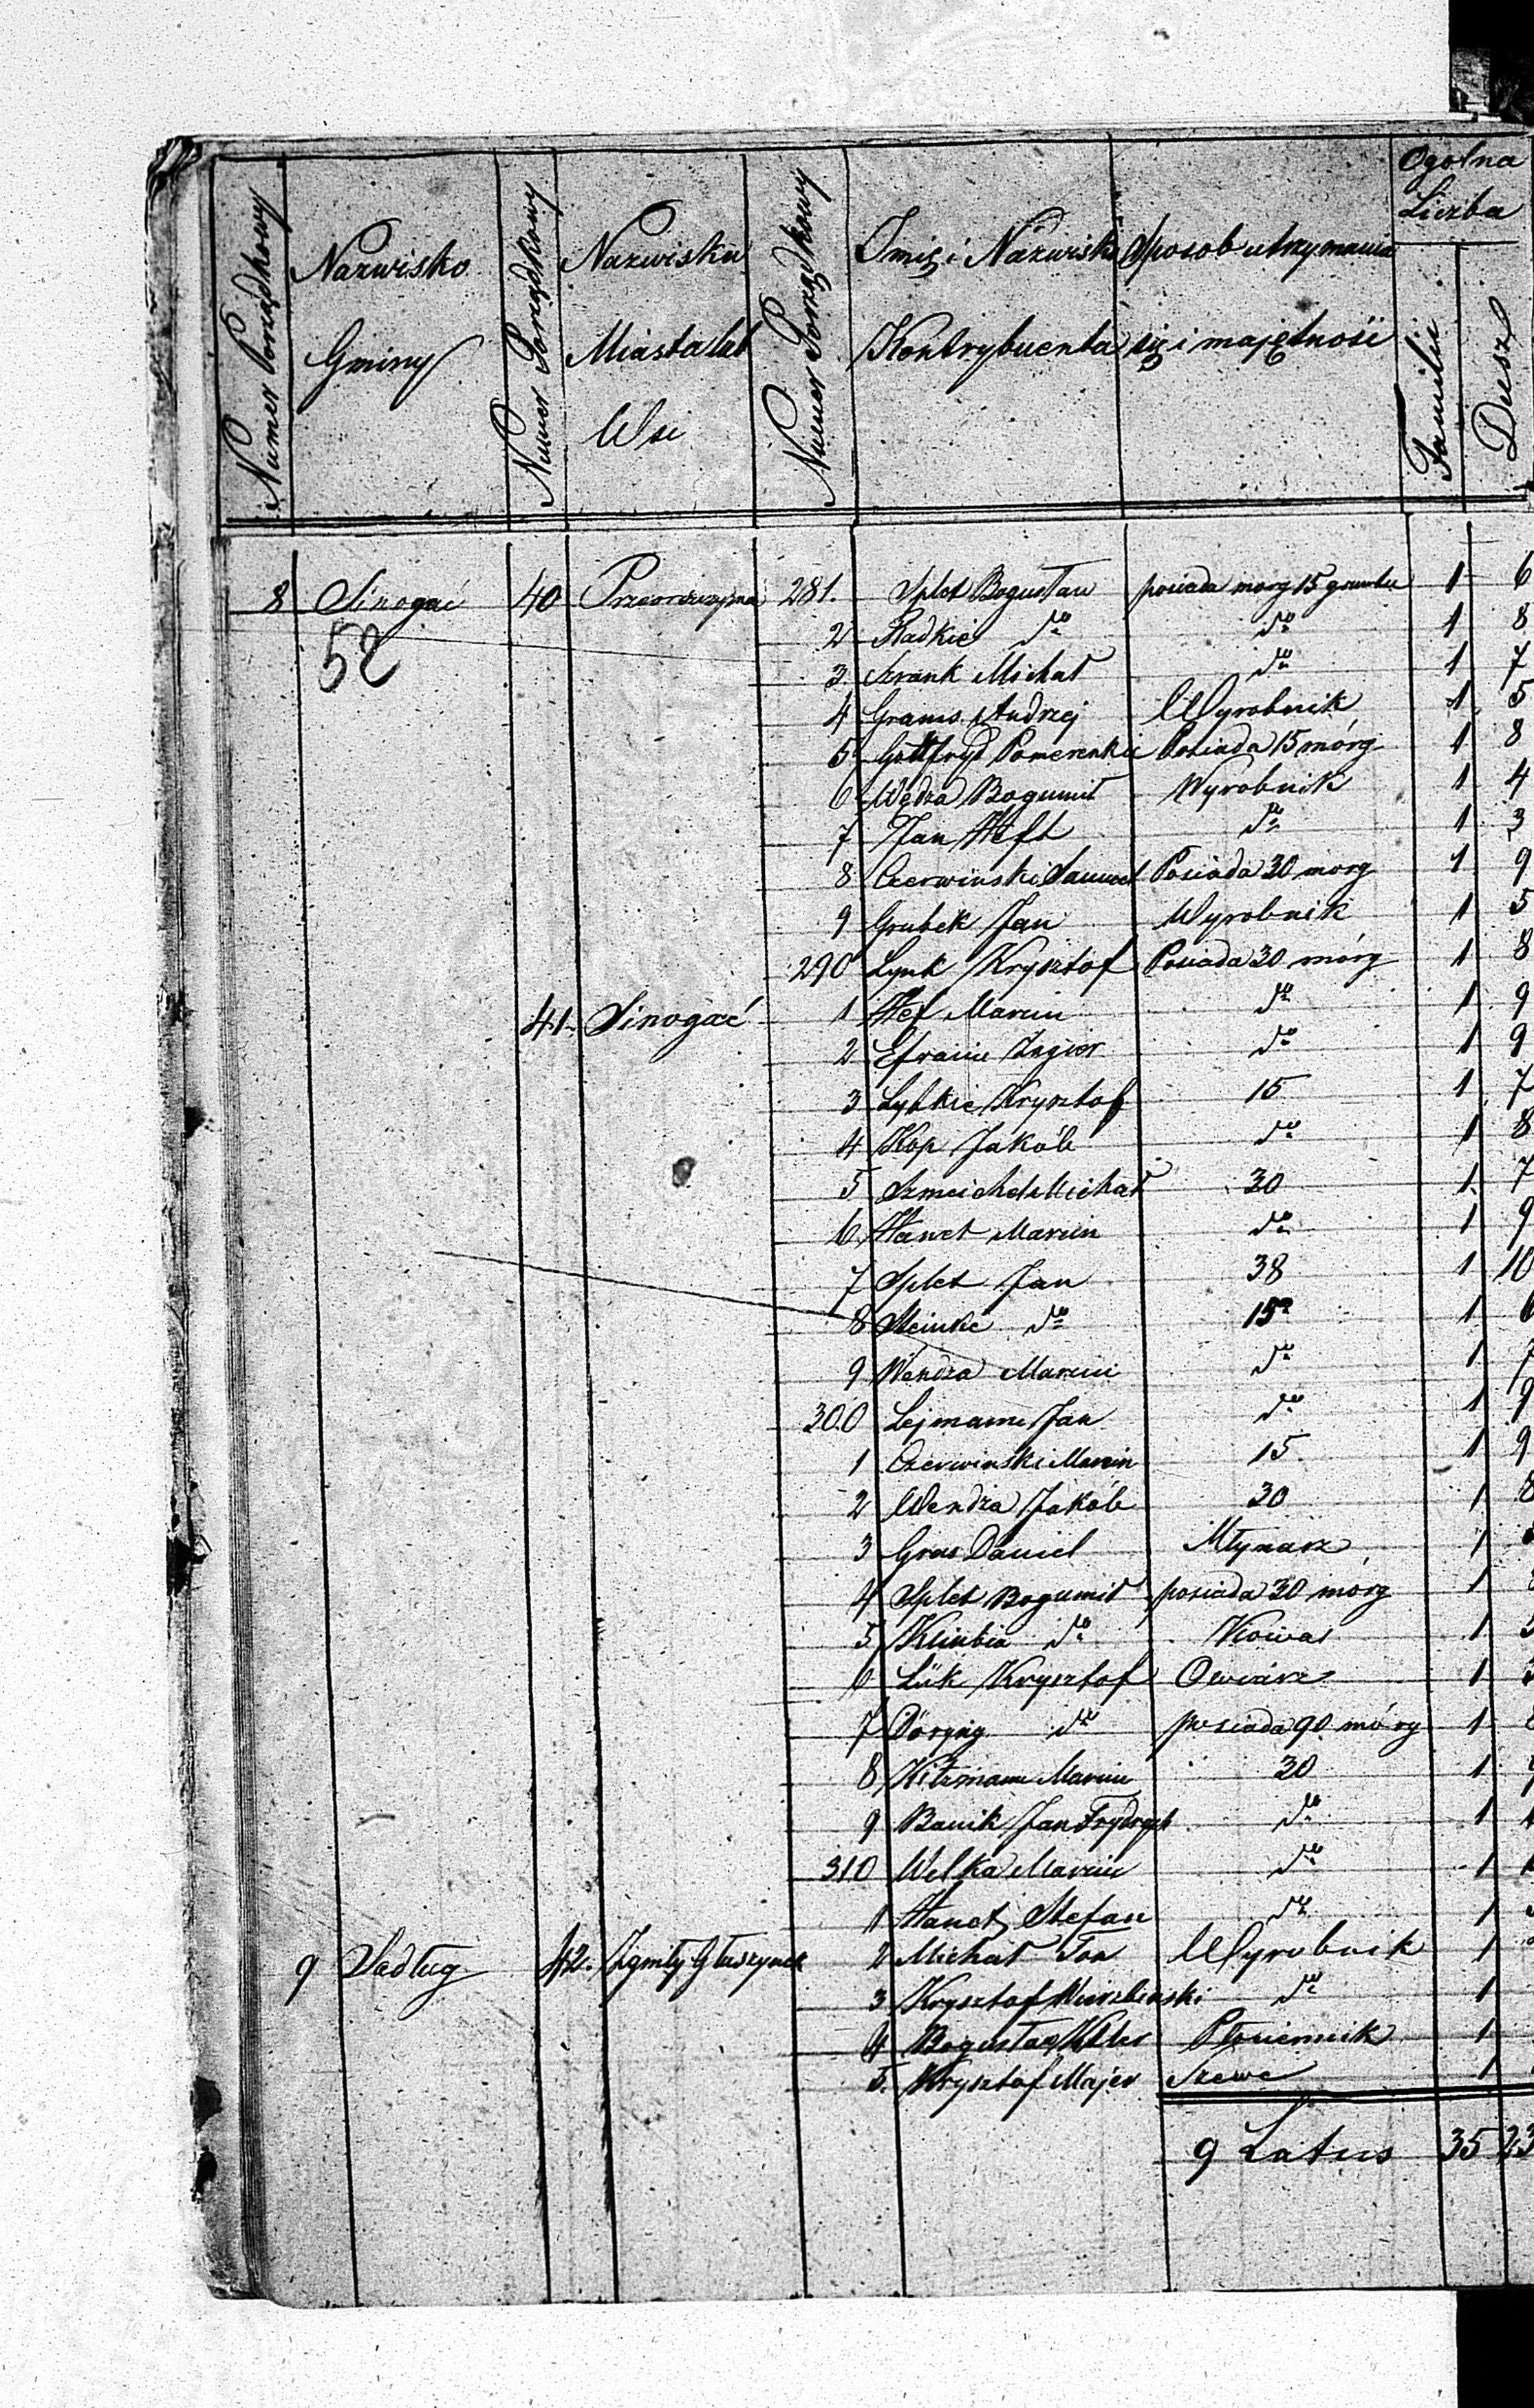 Numer Porządkowy | Nazwisko Gminy | Numer Porządkowy | Nazwisko Miasta lub Wsi | Numer Porządkowy | Imię i Nazwisko Kontrybuenta | Sposob utrzymania się i majętności | Ogolna Liczba Familii | Dusz
8 Sinogać 40 281. Splet Bogusław posiada morg 15 gruntu 1 6
52
2 Radkie do do 1 8
3 Szrank Michał do 1 7
4 Grams Andrzej Wyrobnik 1 5
5 Gottfryd Pomerenkie Posiada 15 mórg 1 8
6 Wędza Bogumił Wyrobnik 1 4
7 Jan Heft do 1 3
8 Czerwinski Samuel Posiada 30 morg 1 9
9 Grubek Jan Wyrobnik 1 5
290 Lynk Krysztof Posiada 30 mórg 1 8
41. Sinogać 1 Hef Marcin do 1 9
2 Efraim Zngier do 1 9
3 Lybkie Krysztof 15 1 7
4 Kop Jakób do 1 8
5 Szmeichel Michał 30 1 7
6 Hanet Marcin do 1 9
7 Splet Jan 38 1 10
8 Steinke do 15 1 6
9 Wendza Marcin do 1 7
300 Lejmann Jan do 1 9
1 Czerwinski Marcin 15 1 9
2 Wendza Jakób 30 1 8
3 Gras Daniel Młynarz 1
4 Splet Bogumił posiada 30 mórg 1
5 do Kowal 1
6 Lük Krysztof Owciarz 1
7 do posiada 90 mórg 1
8 Kitzmann Marcin 30 1
9 Banik Jan Frydrych do 1
310 Welka Marcin do 1
1 Hanet Stefan do 1
9 Sadług 42. Zgniły Głuszynek 2 Michał Wyrobnik 1
3 Krysztof do 1
4 Bogusław Płóciennik 1
5. Krysztof Majer Szewc 1
9 Latus 35 23